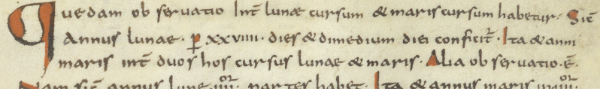 Quedam ob servatio int̄ lunae cursum & maris cursum habetur. Sic̄
Annus lunae. p̄ xxviiii. dies & dimedium diei conficit̄. Ita & anni
maris int̄ duos hos cursus lunae & maris. Alia ob servatio . ē.
sic̄ annus lune . iiiior. partes habet. Ita & annus maris